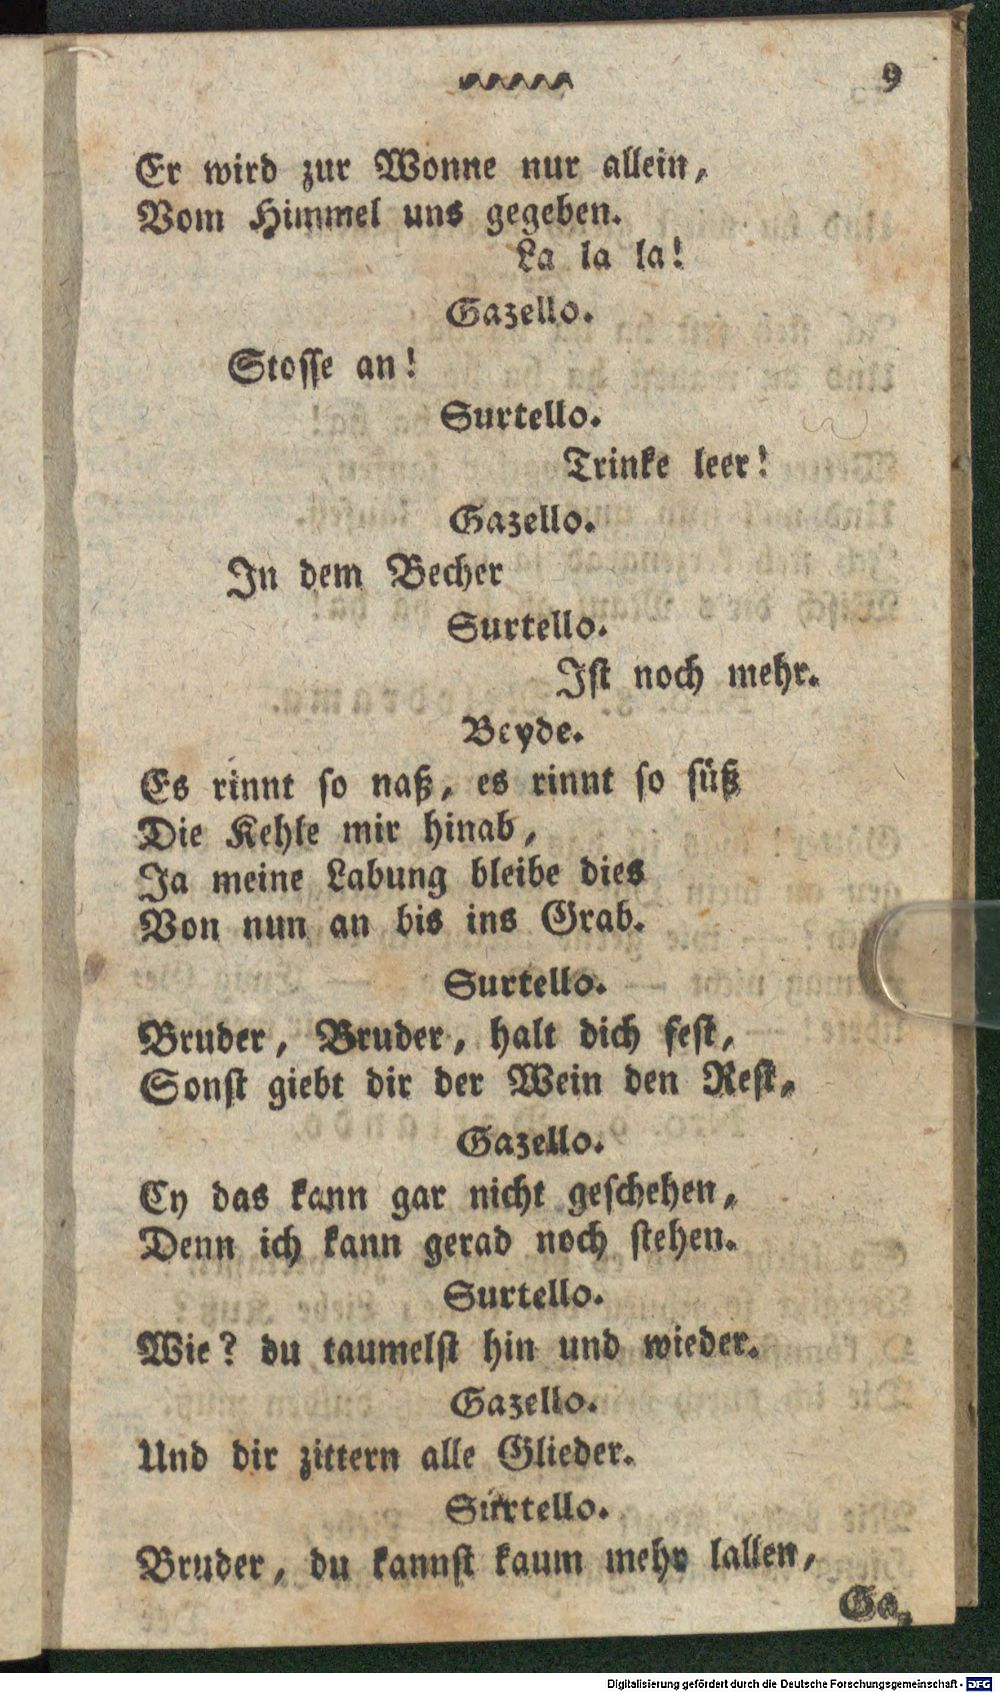 9
Er wird zur Wonne nur allein,
Vom Himmel uns gegeben.
La la la!
Gazello.
Stosse an!
Surtello.
Trinke leer!
Gazello.
In dem Becher
Surtello.
Ist noch mehr.
Beyde.
Es rinnt so naß, es rinnt so süß
Die Kehle mir hinab,
Ja meine Labung bleibe dies
Von nun an bis ins Grab.
Surtello.
Bruder, Bruder, halt dich fest,
Sonst giebt dir der Wein den Rest,
Gazello.
Ey das kann gar nicht geschehen,
Denn ich kann gerad noch stehen.
Surtello.
Wie? du taumelst hin und wieder.
Gazello.
Und dir zittern alle Glieder.
Surtello.
Bruder, du kannst kaum mehr lallen,
Ga-
Digitalisierung gefördert durch die Deutsche Forschungsgemeinschaft - DFG